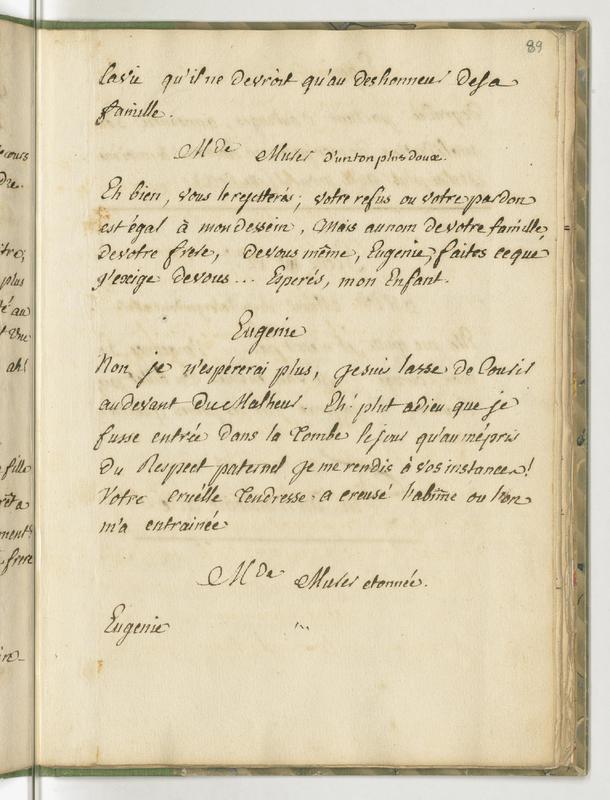 89
la vie qu'il ne devroit qu'au deshonneur de sa
famille.
Mde Murer d'un ton plus doux.
Eh bien, vous le rejetterés; votre refus ou votre pardon
est égal à mon dessein, Mais au nom de votre famille,
de votre frere, de vous même, Eugenie, faites ce que
j'exige de vous... Esperés, mon Enfant.
Eugenie
Non je n'espérerai plus, je suis lasse de Courir
au devant du Malheur. Eh! plut a dieu que je
fusse entrée dans la Tombe le jour qu'au mépris
du Respect paternel je me rendis à vos instances!
Votre cruëlle Tendresse a creusé l'abîme ou l'on
m'a entrainée
Mde Murer etonnée.
Eugenie ...